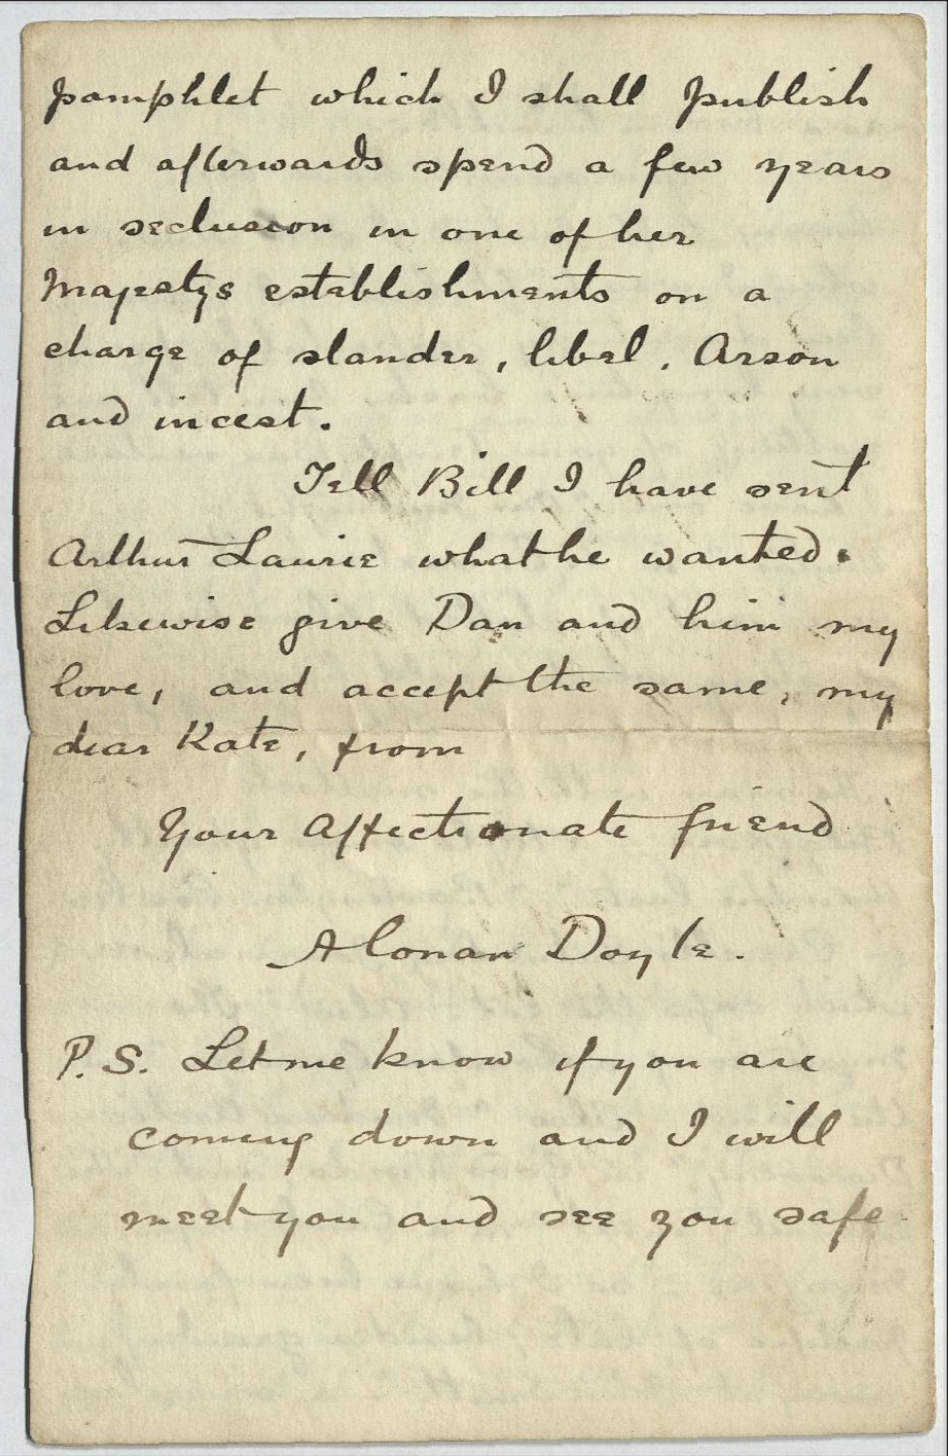 pamphlet which I shall publish
and afterwards spend a few years
in seclusion in one of her
Majestys establishments on a
charge of slander, libel, Arson
and incest.
Tell Bill I have sent
Arthur Laurie what he wanted.
Likewise give Dan and him my
love, and accept the same, my
dear Kate, from
Your Affectionate friend
A Conan Doyle.
P.S. Let me know if you are
coming down and I will
meet you and see you safe